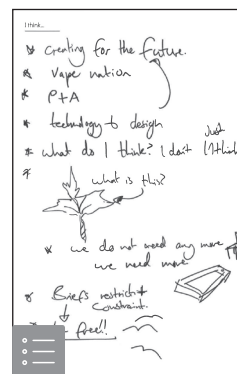 I think...
Creating for the future.
Vape nation
P+A
technology + design
what do I think? I don't
Just
(I think
what is this?
we do not need any more
we need more
Briefs restrict
constraint.
free!!